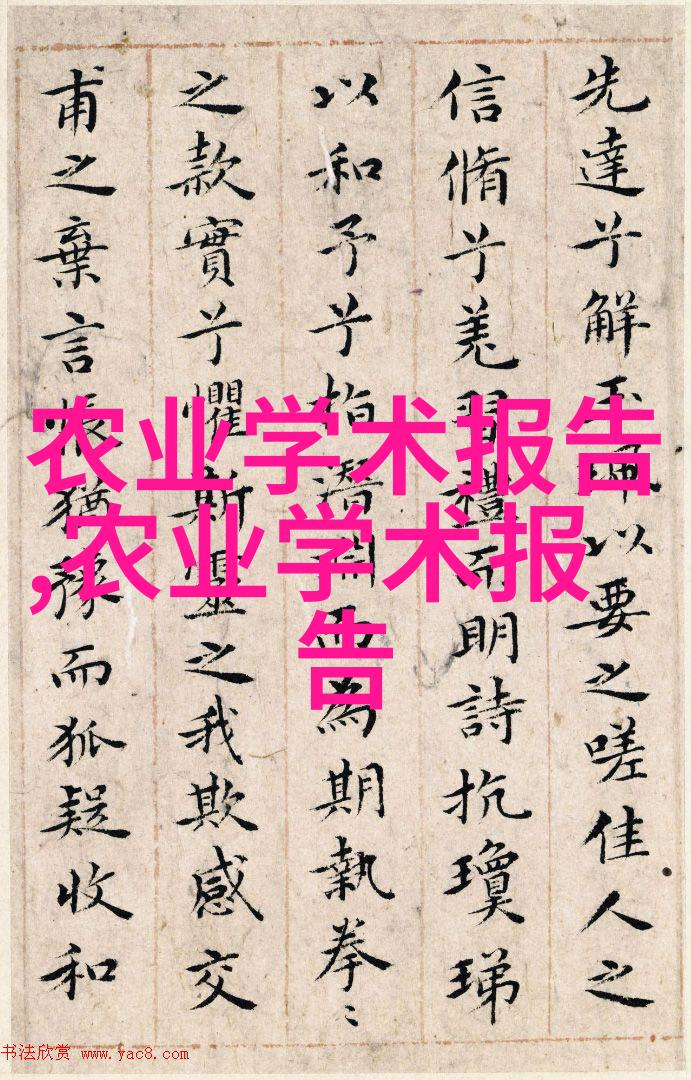 先達兮解玉珮以要之嗟佳人之
信脩兮羌習禮而明詩抗瓊珶
以和予兮指潛淵而為期執拳〻
之款實兮懼斯靈之我欺感交
甫之棄言悵猶豫而狐疑收和
农业学术报告
,农业学术报
告
书法欣赏 www.yac8.com